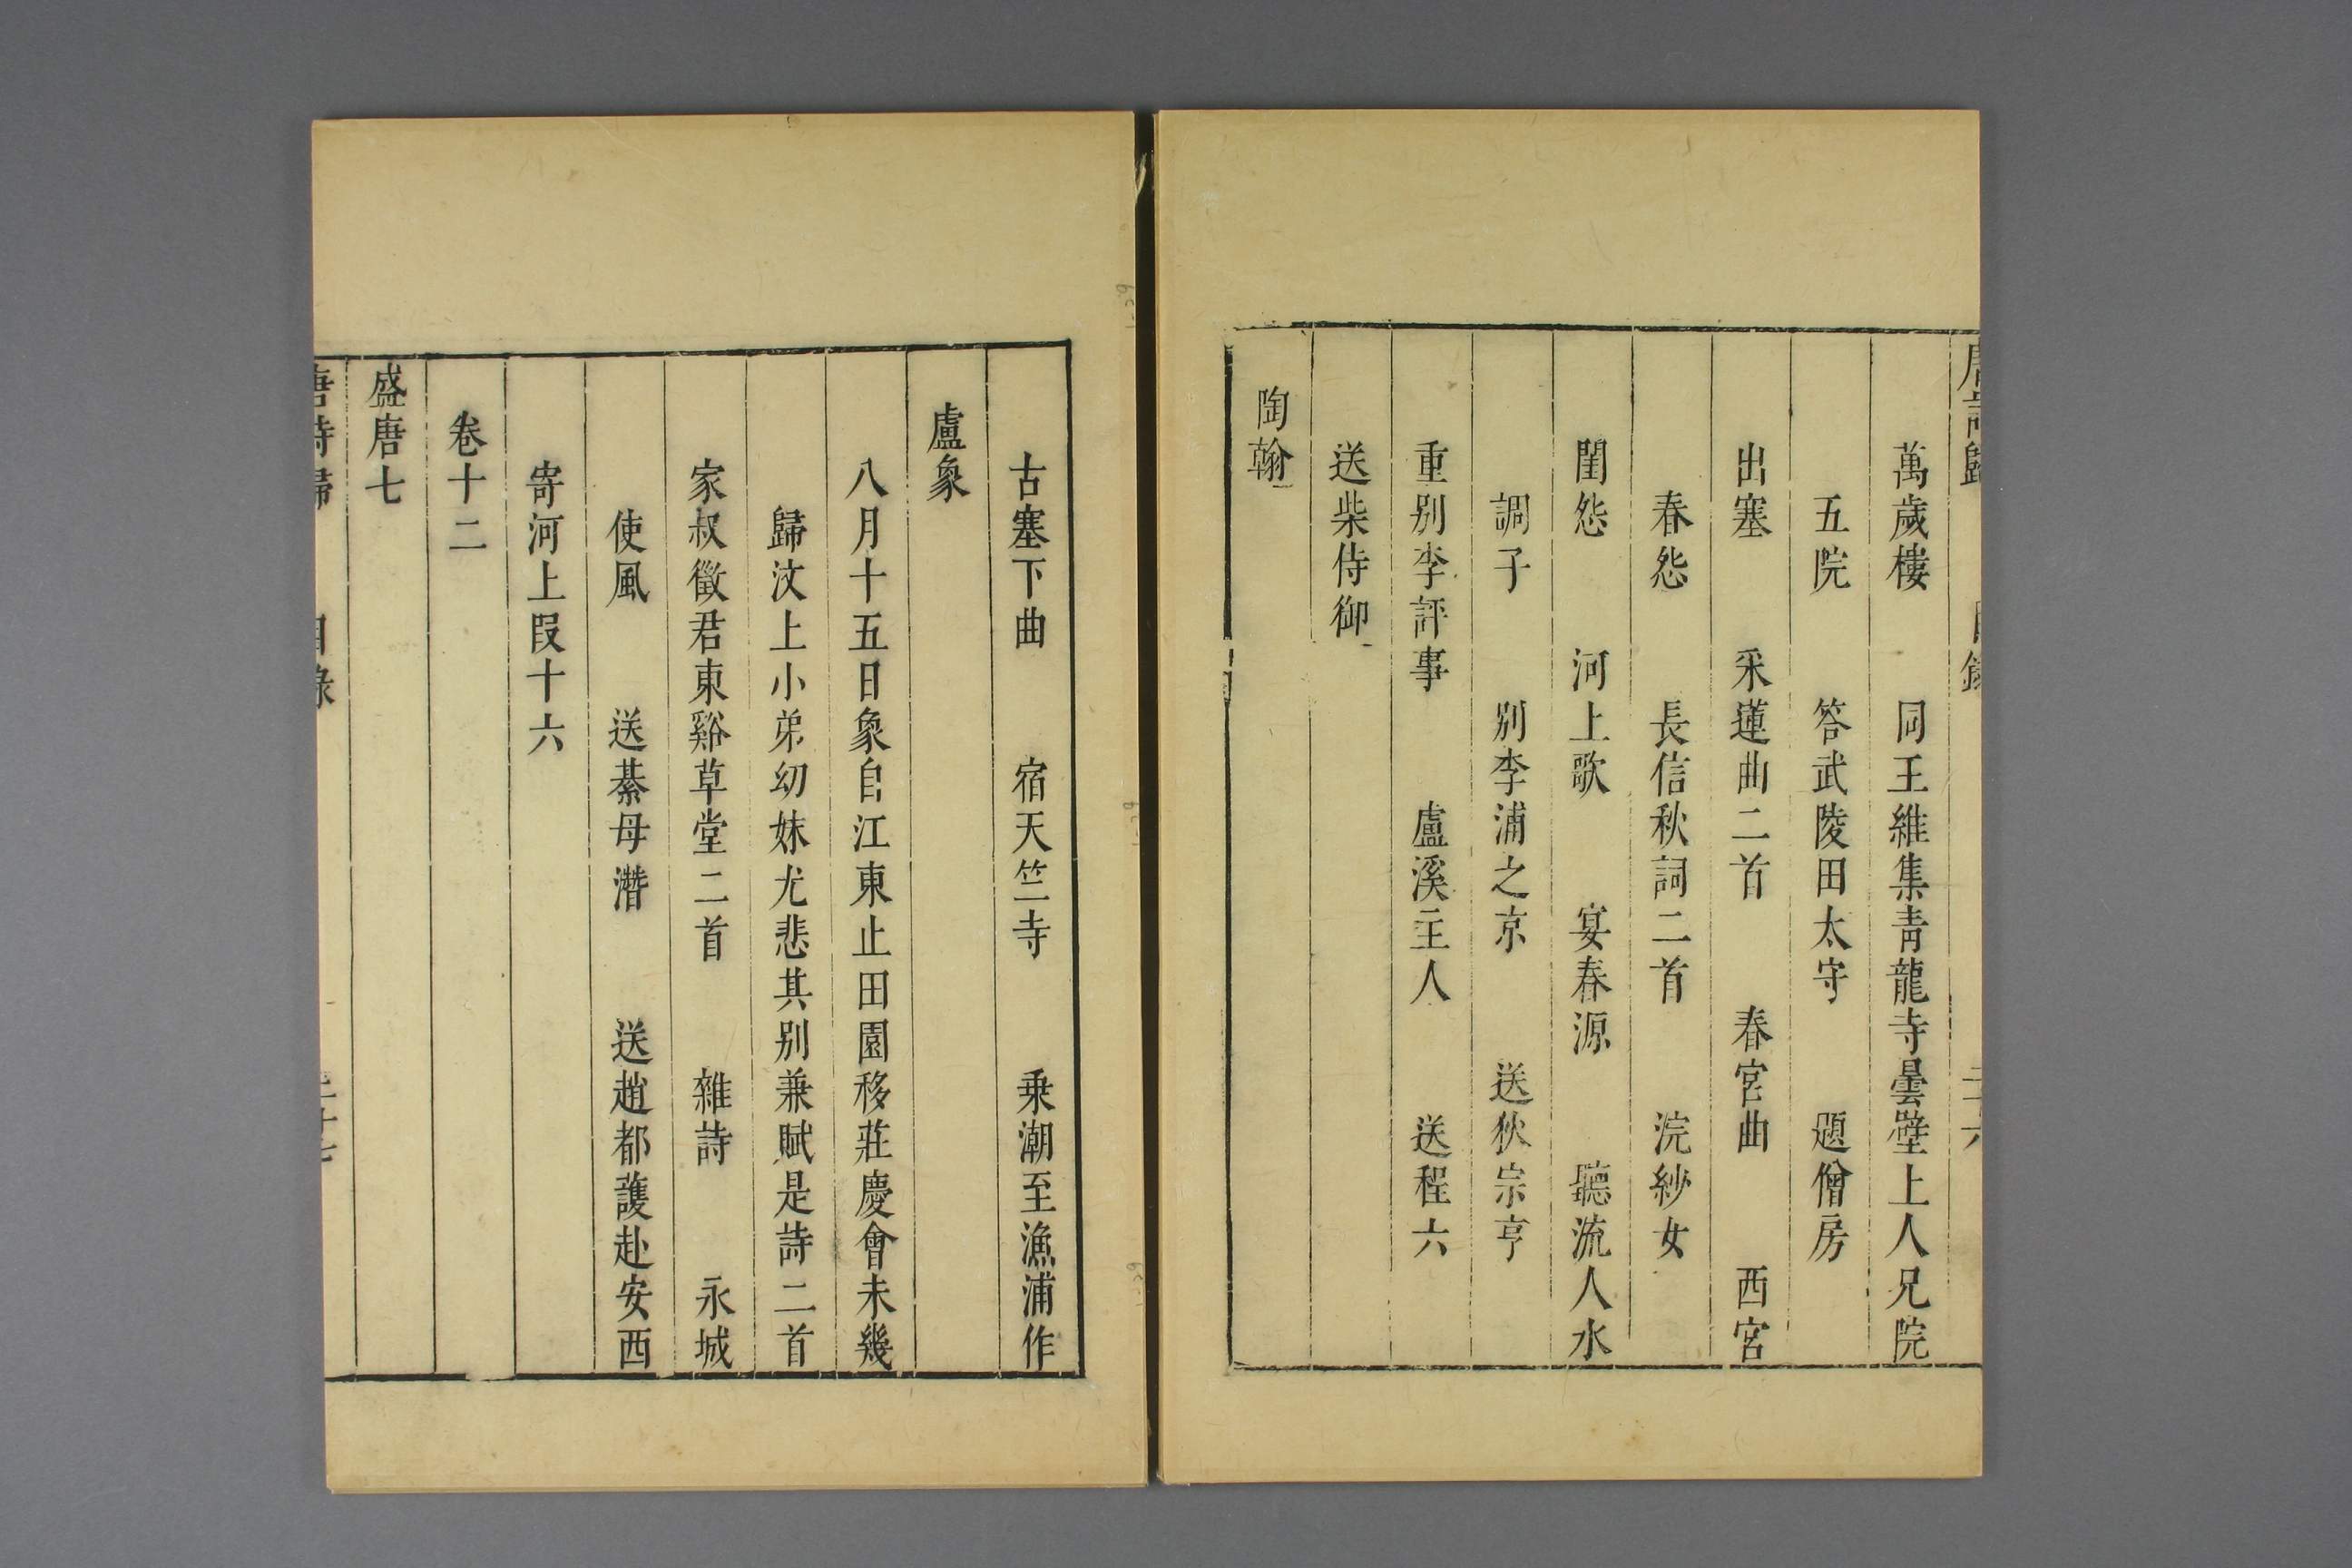 唐詩歸 目錄 二十六
萬歲樓 同王維集青龍寺曇壁上人兄院
五院 答武陵田太守 題僧房
出塞 采蓮曲二首 春宮曲 西宮
春怨 長信秋詞二首 浣紗女
閨怨 河上歌 宴春源 聽流人水
調子 别李浦之京 送狄宗亨
重别李評事 盧溪主人 送程六
送柴侍御
陶翰
古塞下曲 宿天竺寺 乘潮至漁浦作
盧象
八月十五日象自江東止田園移莊慶會未幾
歸汶上小弟幼妹尤悲其别兼賦是詩二首
家叔徵君東谿草堂二首 雜詩 永城
使風 送綦母潛 送趙都護赴安西
寄河上叚十六
卷十二
盛唐七
唐詩歸 目錄 二十七